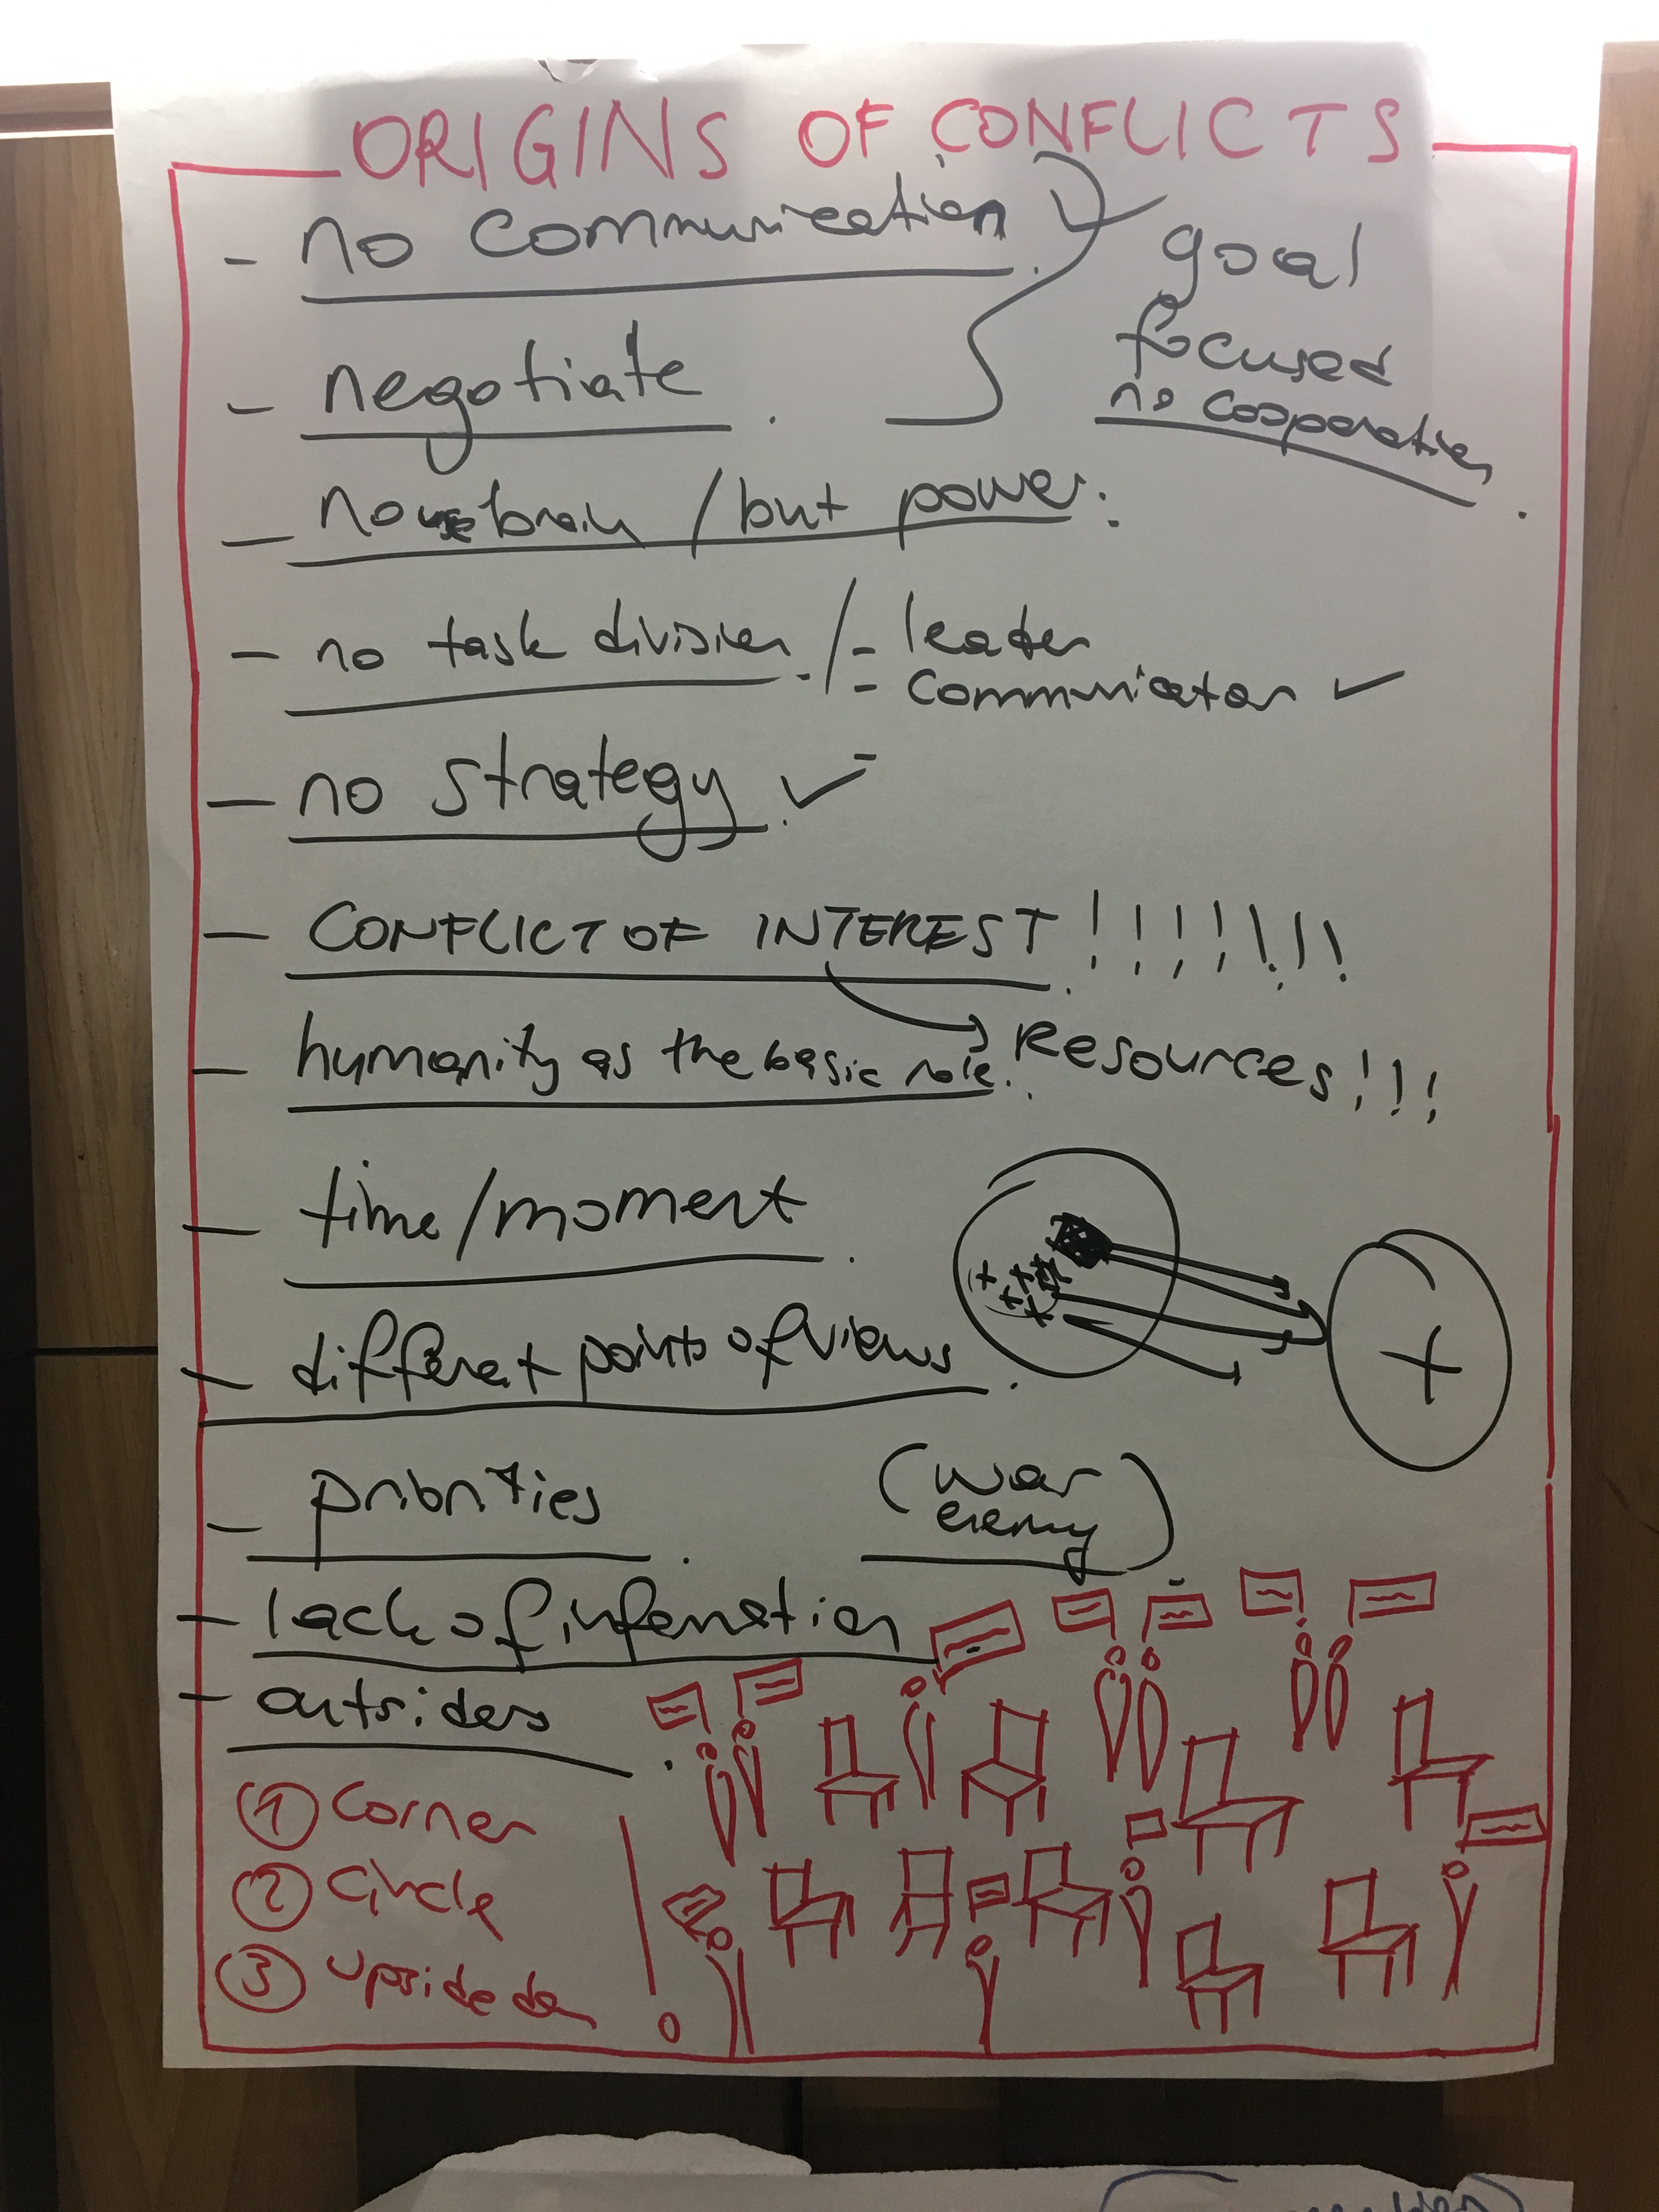 ORIGINS OF CONFLICTS
- no communication.
goal
focused
no cooperation.
- negotiate.
- no use brain / but power.
- no task division. / - leader
- communicator ✓
-
- no strategy. ✓
- CONFLICT OF INTEREST !!!!!!!
→ Resources!!!
- humanity as the basic role.
- time/moment.
- different points of views.
+ + + + +
+
- priorities.
(war
enemy)
- lack of information
- outsiders.
① Corner
② Circle
③ upside do